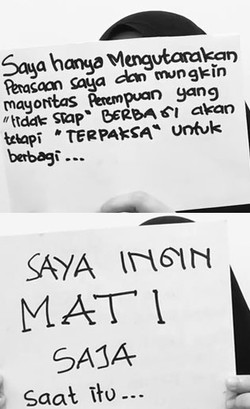 Saya hanya Mengutarakan
Perasaan saya dan mungkin
mayoritas Perempuan yang
"tidak siap" BERBAGI akan
tetapi "TERPAKSA" untuk
berbagi...
SAYA INGIN
MATI
SAJA
saat itu...